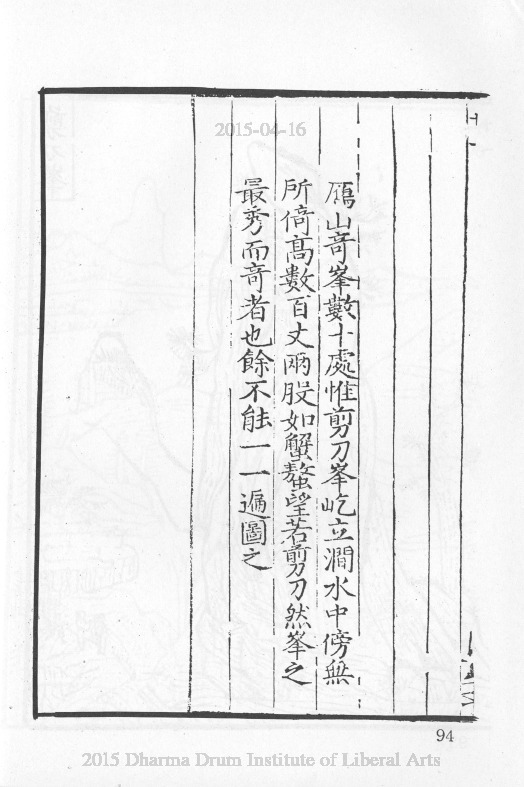 2015-04-16
鴈山竒峯數十處惟剪刀峯屹立澗水中傍無
所倚髙數百丈兩股如蟹螯望若剪刀然峯之
最秀而竒者也餘不能一一遍圖之
94
2015 Dharma Drum Institute of Liberal Arts